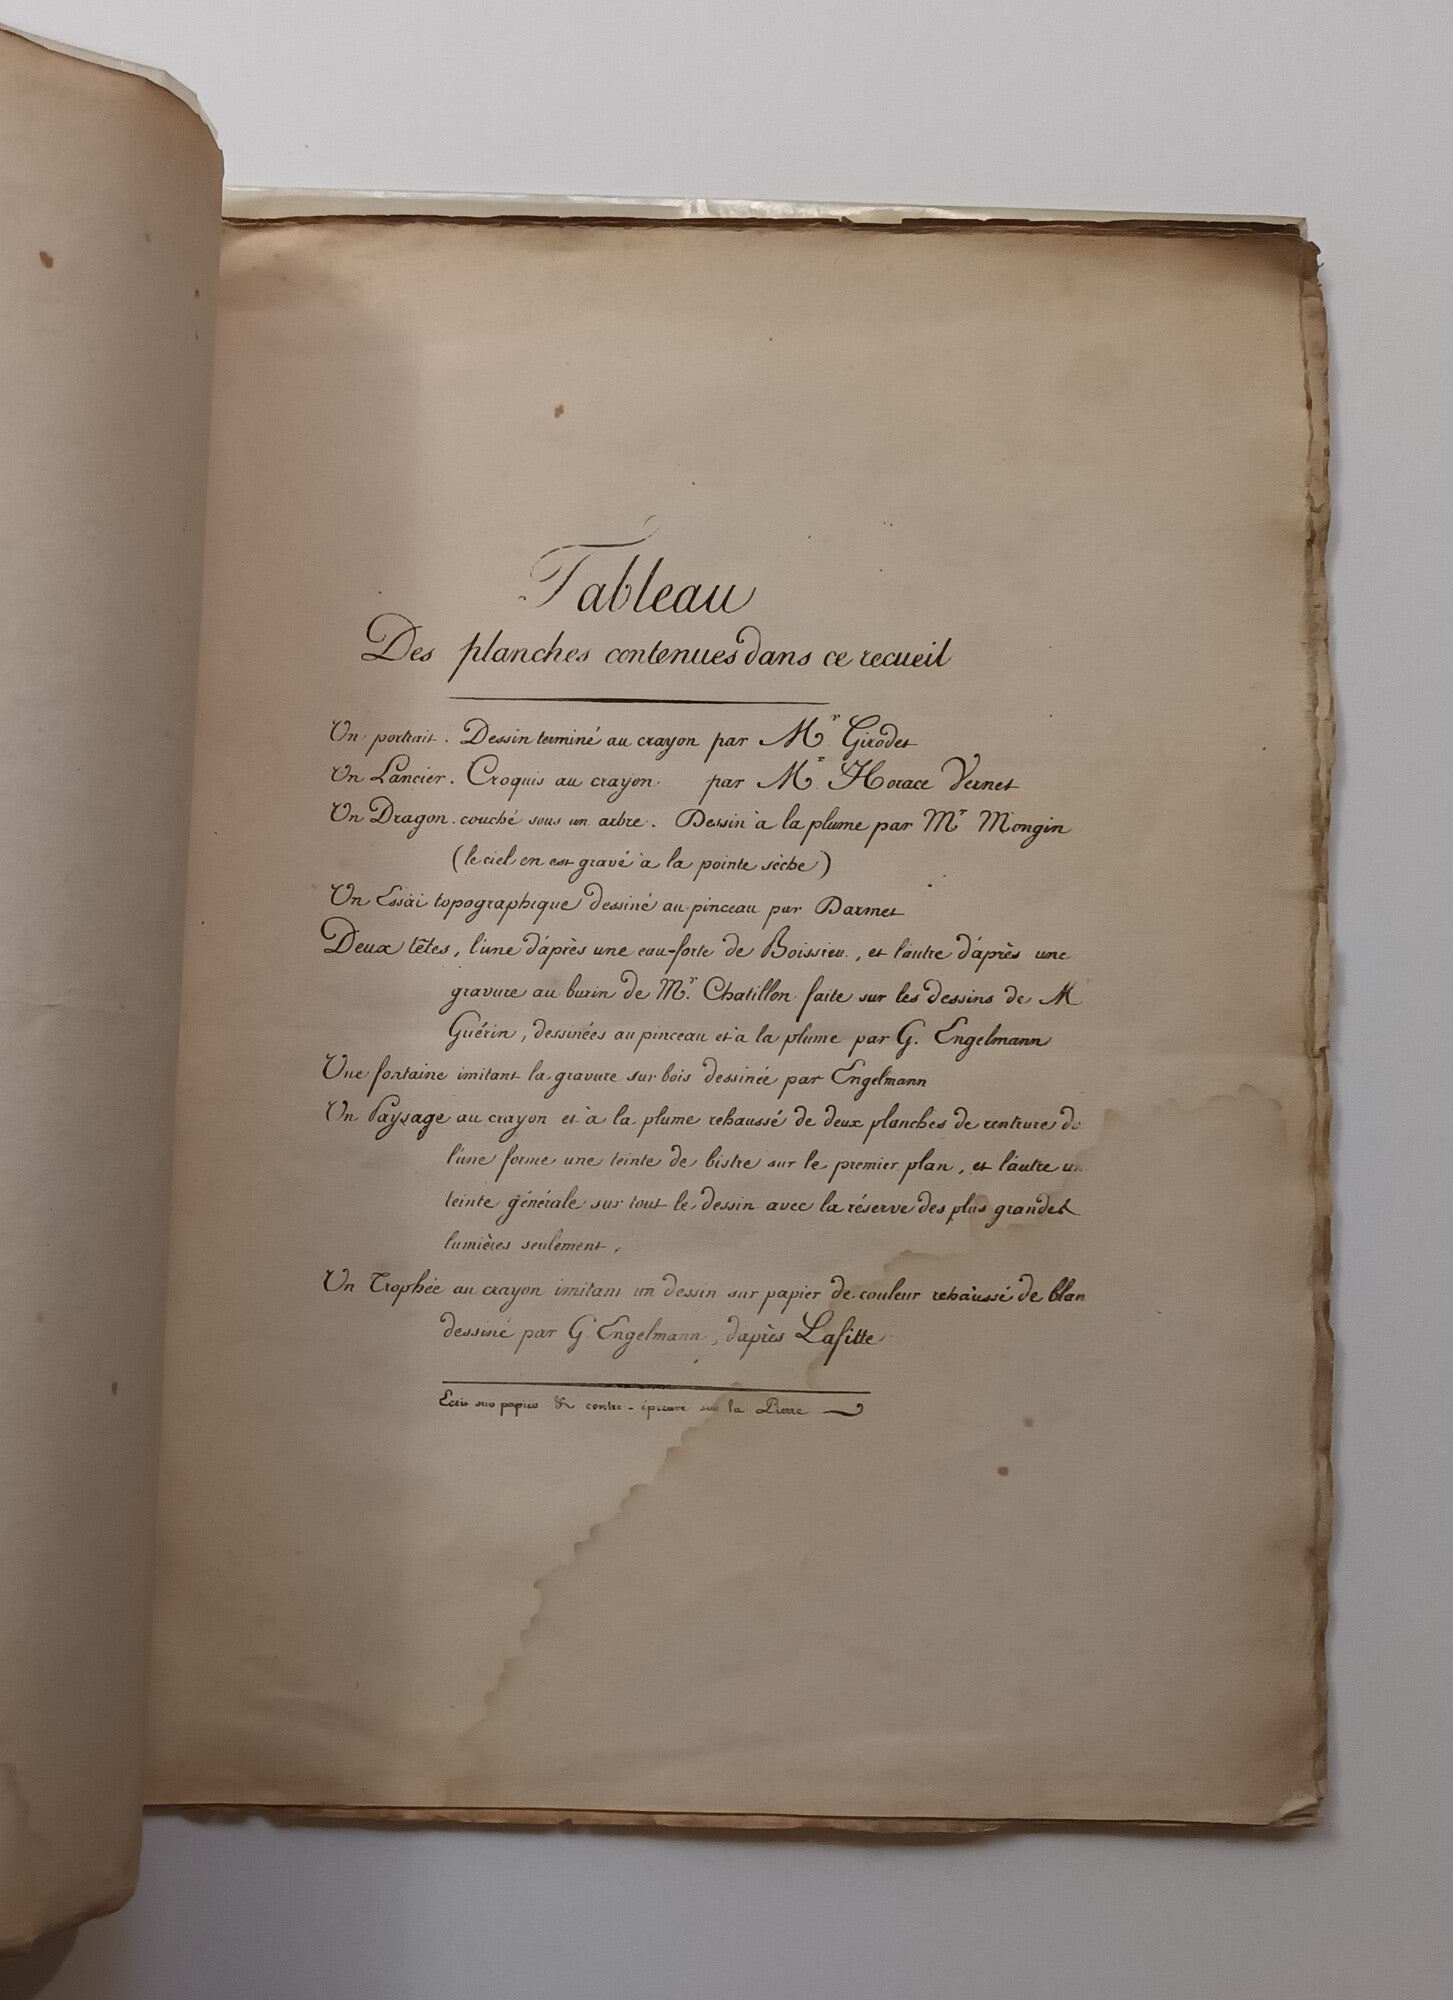 Tableau
Des planches contenues dans ce recueil
Un portrait. Dessin terminé au crayon par Mr. Girodet
Un Lancier. Croquis au crayon par Mr. Horace Vernet
Un Dragon couché sous un arbre. Dessin à la plume par Mr Mongin
(le ciel en est gravé à la pointe sèche)
Un Essai topographique dessiné au pinceau par Darmet
Deux têtes, l'une d'après une eau-forte de Boissieu, et l'autre d'après une
gravure au burin de Mr. Chatillon faite sur les dessins de M
Guérin, dessinées au pinceau et à la plume par G. Engelmann
Une fontaine imitant la gravure sur bois dessinée par Engelmann
Un Paysage au crayon et à la plume rehaussé de deux planches de rentrure do
l'une forme une teinte de bistre sur le premier plan, et l'autre un
teinte générale sur tout le dessin avec la réserve des plus grandes
lumières seulement.
Un Trophée au crayon imitant un dessin sur papier de couleur rehaussé de blan
dessiné par G. Engelmann, d'après Lafitte
Ecrit sur papier & contre-épreuvé sur la Pierre